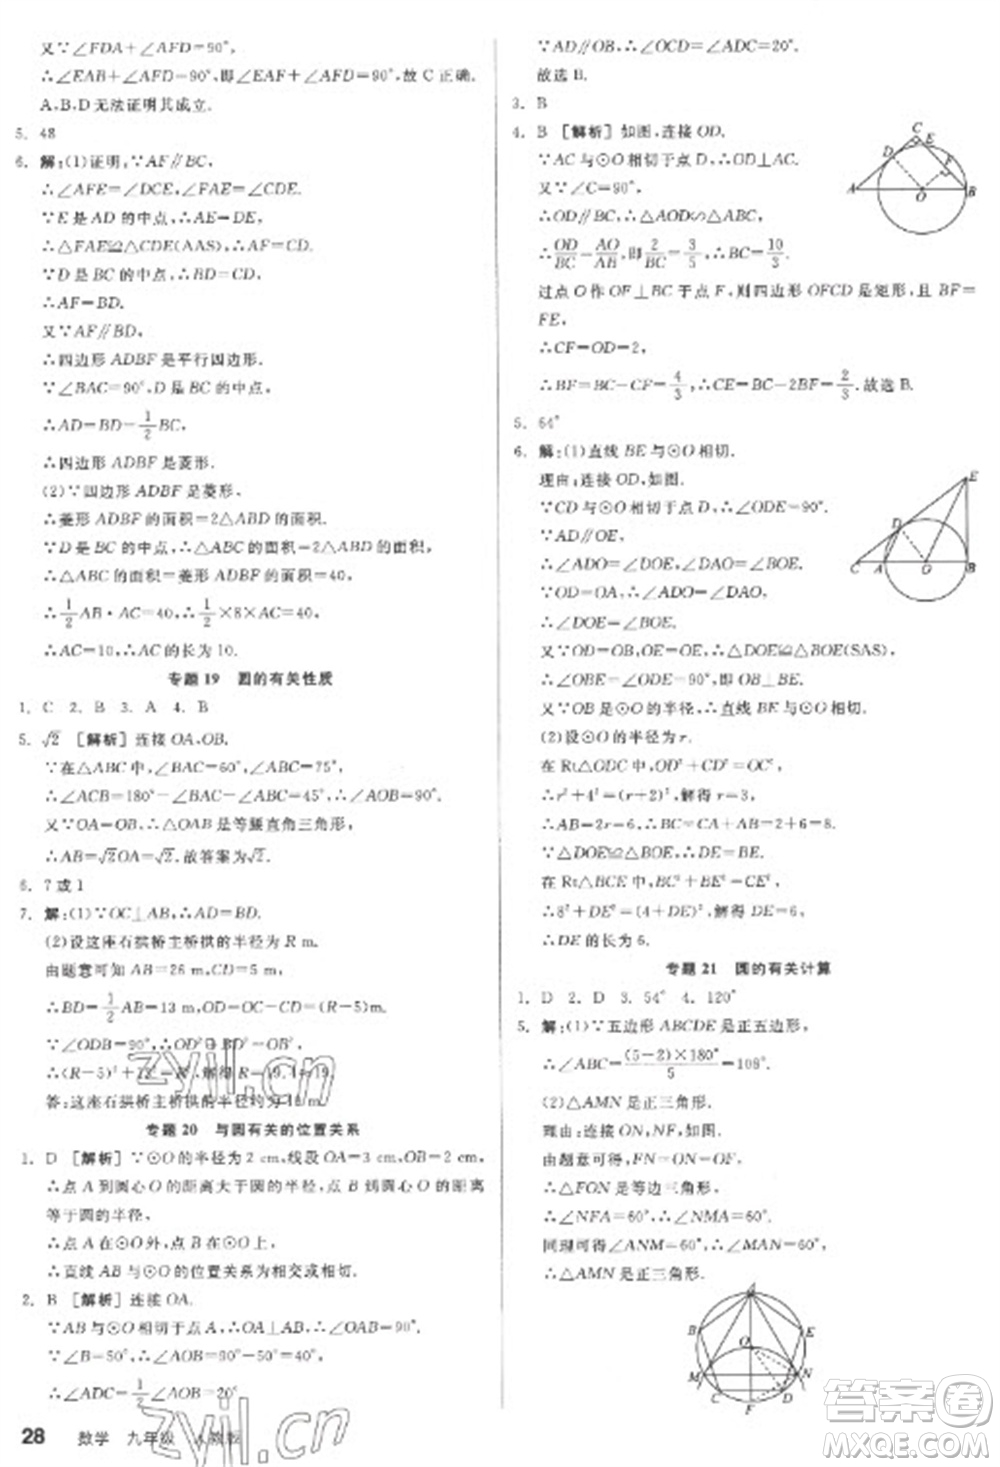 又∵∠FDA+∠AFD=90°,
∴∠EAB+∠AFD=90°,即∠EAF+∠AFD=90°,故 C 正确.
A,B,D无法证明其成立.
5. 48
6. 解:(1)证明,∵AF∥BC,
∴∠AFE=∠DCE,∠FAE=∠CDE.
∵E是AD的中点,∴AE=DE,
∴△FAE≌△CDE(AAS),∴AF=CD.
∵D是BC的中点,∴BD=CD,
∴AF=BD.
又∵AF∥BD,
∴四边形 ADBF 是平行四边形.
∵∠BAC=90°,D是BC的中点,
∴AD=BD=1/2BC,
∴四边形ADBF是菱形.
(2)∵四边形ADBF是菱形,
∴菱形ADBF的面积=2△ABD的面积.
∵D是BC的中点,∴△ABC的面积=2△ABD的面积,
∴△ABC的面积=菱形ADBF的面积=40,
∴1/2AB·AC=40,∴1/2×8×AC=40,
∴AC=10,∴AC的长为10.
专题 19 圆的有关性质
1. C 2. B 3. A 4. B
5. √2 [解析]连接OA,OB.
∵在△ABC中,∠BAC=60°,∠ABC=75°,
∴∠ACB=180°-∠BAC-∠ABC=45°,∴∠AOB=90°,
又∵OA=OB,∴△OAB是等腰直角三角形,
∴AB=√2OA=√2.故答案为√2.
6. 7或1
7. 解:(1)∵OC⊥AB,∴AD=BD.
(2)设这座石拱桥主桥拱的半径为R m.
由题意可知AB=26 m,CD=5 m,
∴BD=1/2AB=13(m),OD=OC-CD=(R-5)m.
∵∠ODB=90°,∴OD²+BD²=OB²,
∴(R-5)²+13²=R²,解得R=19.4≈19.
答:这座石拱桥主桥拱的半径约为19 m.
专题 20 与圆有关的位置关系
1. D [解析]∵⊙O的半径为2 cm,线段OA=3 cm,OB=2 cm,
∴点A到圆心O的距离大于圆的半径,点B到圆心O的距离
等于圆的半径,
∴点A在⊙O外,点B在⊙O上,
∴直线AB与⊙O的位置关系为相交或相切.
2. B [解析]连接OA.
∵AB与⊙O相切于点A,∴OA⊥AB,∴∠OAB=90°.
∵∠B=50°,∴∠AOB=90°-50°=40°,
∴∠ADC=1/2∠AOB=20°
28 数学 九年级 人教版
∵AD∥OB,∴∠OCD=∠ADC=20°.
故选B.
3. B
4. B [解析]如图,连接OD.
∵AC与⊙O相切于点D,∴OD⊥AC.
又∵∠C=90°,
∴OD∥BC,∴△AOD∽△ABC,
∴OD/BC=AO/AB,即2/BC=3/5,∴BC=10/3.
过点O作OF⊥BC于点F,则四边形OFCD是矩形,且BF=
FE,
∴CF=OD=2,
∴BF=BC-CF=4/3,∴CE=BC-2BF=2/3.故选B.
5. 64°
6. 解:(1)直线BE与⊙O相切.
理由:连接OD,如图.
∵CD与⊙O相切于点D,∴∠ODE=90°.
∵AD∥OE,
∴∠ADO=∠DOE,∠DAO=∠EOB.
∵OD=OA,∴∠ADO=∠DAO,
∴∠DOE=∠BOE.
又∵OD=OB,OE=OE,∴△DOE≌△BOE(SAS),
∴∠OBE=∠ODE=90°,∴OB⊥BE.
又∵OB是⊙O的半径,∴直线BE与⊙O相切.
(2)设⊙O的半径为r.
在Rt△ODC中,OD²+CD²=OC²,
∴r²+4²=(r+2)²,∴r=3,
∴AB=2r=6,∴BC=CA+AB=2+6=8.
∵△DOE≌△BOE,∴DE=BE.
在Rt△BCE中,BC²+BE²=CE²,
∴8²+DE²=(4+DE)²,解得DE=6,
∴DE的长为6.
专题 21 圆的有关计算
1. D 2. D 3. 54° 4. 120°
5. 解:(1)∵五边形ABCDE是正五边形,
∴∠ABC=(5-2)×180°/5=108°.
(2)△AMN是正三角形.
理由:连接ON,FN,如图.
由题意可得,FN=ON=OF,
∴△FON是等边三角形,
∴∠NFA=60°,∴∠NMA=60°.
同理可得∠ANM=60°,∴∠MAN=60°,
∴△AMN是正三角形.
C
D
E
F
A
O
B
E
D
C
A
O
B
A
B
E
O
M
N
C
D
F
zyjl.cn
zyjl.cn
答案圈